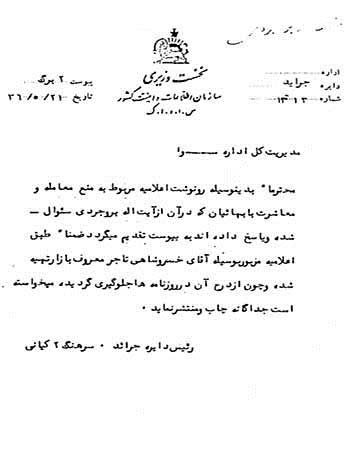 نخست وزیری
سازمان اطلاعات و امنیت کشور
س.ا.و.ا.ک
اداره
دایره جراید
شماره
پیوست ۲ برگ
تاریخ ۳۶/۵/۲۱
مدیریت کل اداره وا
محترما" بدینوسیله رونوشت اعلامیه مربوط به منع معامله و
معاشرت با بهائیان که در آن از آیت اله بروجردی سئوال
شده و پاسخ داده اند به پیوست تقدیم میگردد ضمنا" طبق
اعلامیه مزبور بوسیله آقای خسروشاهی تاجر معروف بازار تهیه
شده و چون از درج آن در روزنامه ها جلوگیری گردیده میخواسته
است جداگانه چاپ و منتشر نماید.
رئیس دایره جرائد . سرهنگ ۲ کیانی